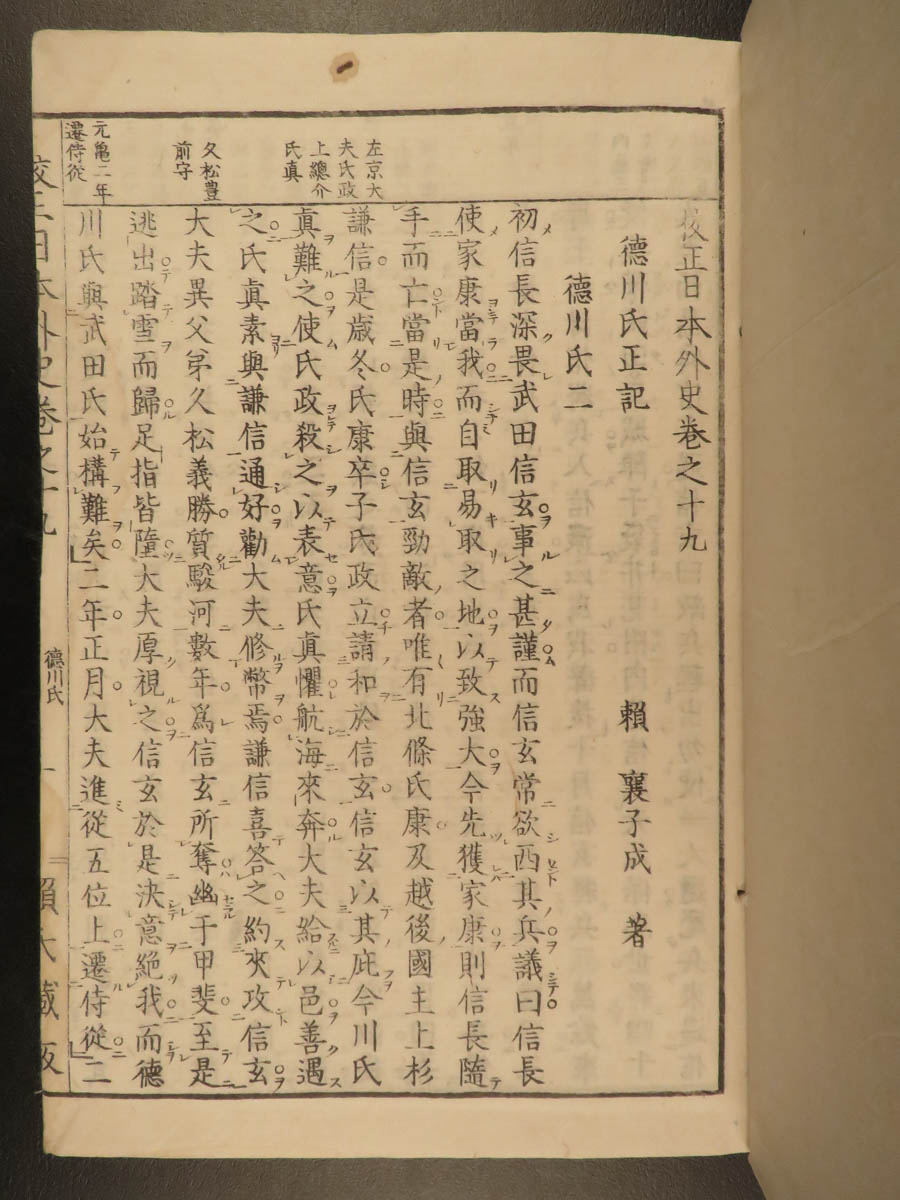 校正日本外史卷之十九
德川氏正記 賴襄子成 著
德川氏二
初信長深畏武田信玄事之甚謹而信玄常欲西其兵議曰信長
使家康當我而自取易取之地以致強大今先獲家康則信長隨
手而亡當是時與信玄勁敵者唯有北條氏康及越後國主上杉
謙信是歲冬氏康卒子氏政立請和於信玄信玄以其庇今川氏
眞難之使氏政殺之以表意氏眞懼航海來奔大夫給以邑善遇
之氏眞素與謙信通好勸大夫修幣焉謙信喜答之約夾攻信玄
大夫異父弟久松義勝質駿河數年爲信玄所奪幽于甲斐至是
逃出踏雪而歸足指皆墮大夫厚視之信玄於是決意絶我而德
川氏與武田氏始構難矣二年正月大夫進從五位上遷侍從二
左京大
夫氏政
上總介
氏真
久松豊
前守
元亀二年
遷侍従
校正日本外史卷之十九
德川氏
一
賴氏藏版